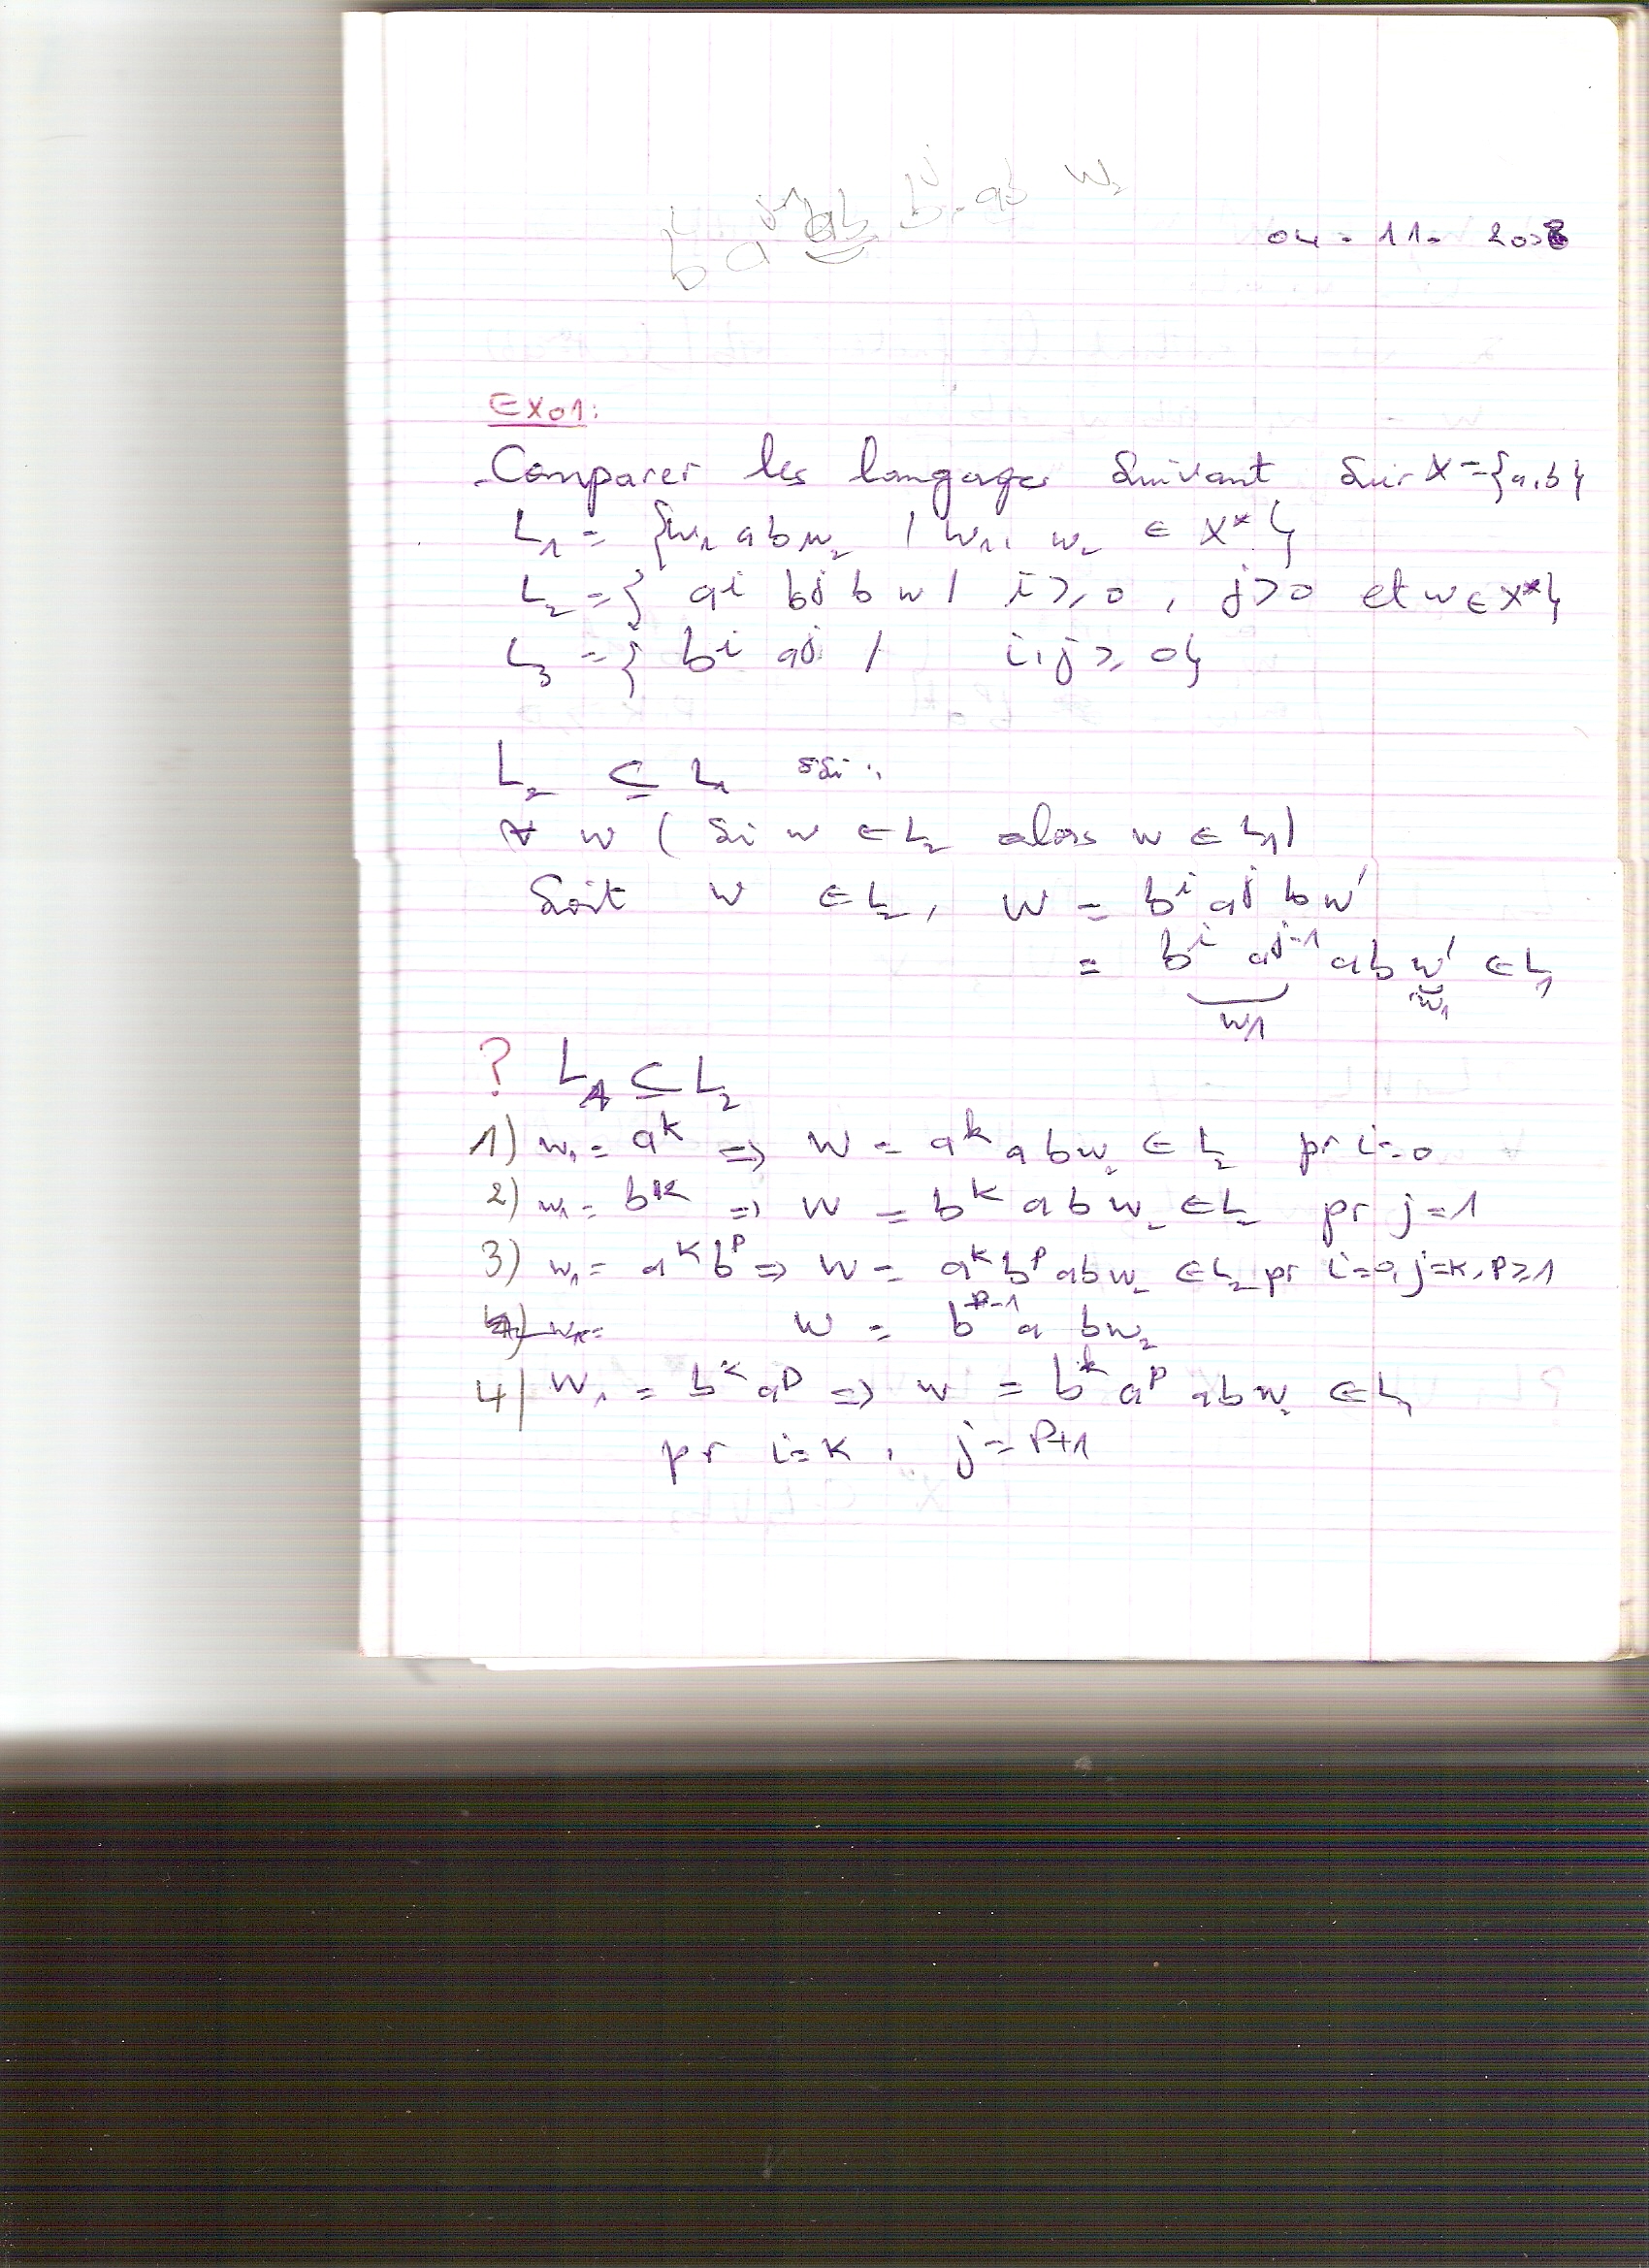 04-11-2008
Exo1:
Comparer les langages suivant sur X={a,b}
L₁ = {w₁ ab w₂ / w₁, w₂ ∈ X*}
L₂ = { aⁱ bʲ b w / i ≥ 0, j > 0 et w ∈ X*}
L₃ = { bⁱ aʲ / i,j ≥ 0}
L₂ ⊆ L₁ ssi :
∀ w ( Si w ∈ L₂ alors w ∈ L₁)
Soit w ∈ L₂, w = bⁱ aʲ b w'
= bⁱ aʲ⁻¹ ab w' ∈ L₁
w1 w₁
? L₁ ⊆ L₂
1) w₁ = aᵏ ⇒ w = aᵏ a b w₂ ∈ L₂ pr i=0
2) w₁ = bᵏ ⇒ w = bᵏ a b w₂ ∈ L₂ pr j=1
3) w₁ = aᵏ bᵖ ⇒ w = aᵏ bᵖ ab w₂ ∈ L₂ pr i=0, j=k, p≥1
w = bᵖ⁻¹ a b w₂
4) w₁ = bᵏ aᵖ ⇒ w = bᵏ aᵖ ab w₂ ∈ L₁
pr i=k, j=p+1